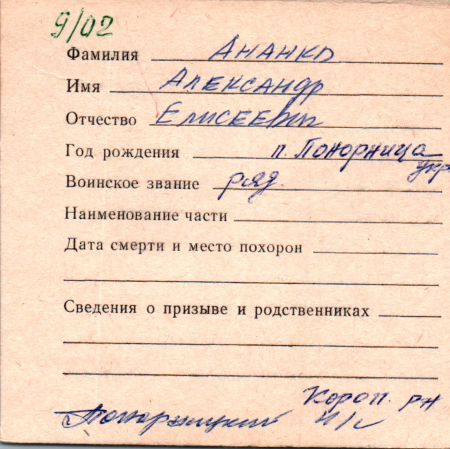 9/02
Фамилия Ананко
Имя Александр
Отчество Елисеевич
Год рождения п. Понорница
укр
Воинское звание ряд.
Наименование части
Дата смерти и место похорон
Сведения о призыве и родственниках
Короп. рн
Понорницкий с/с